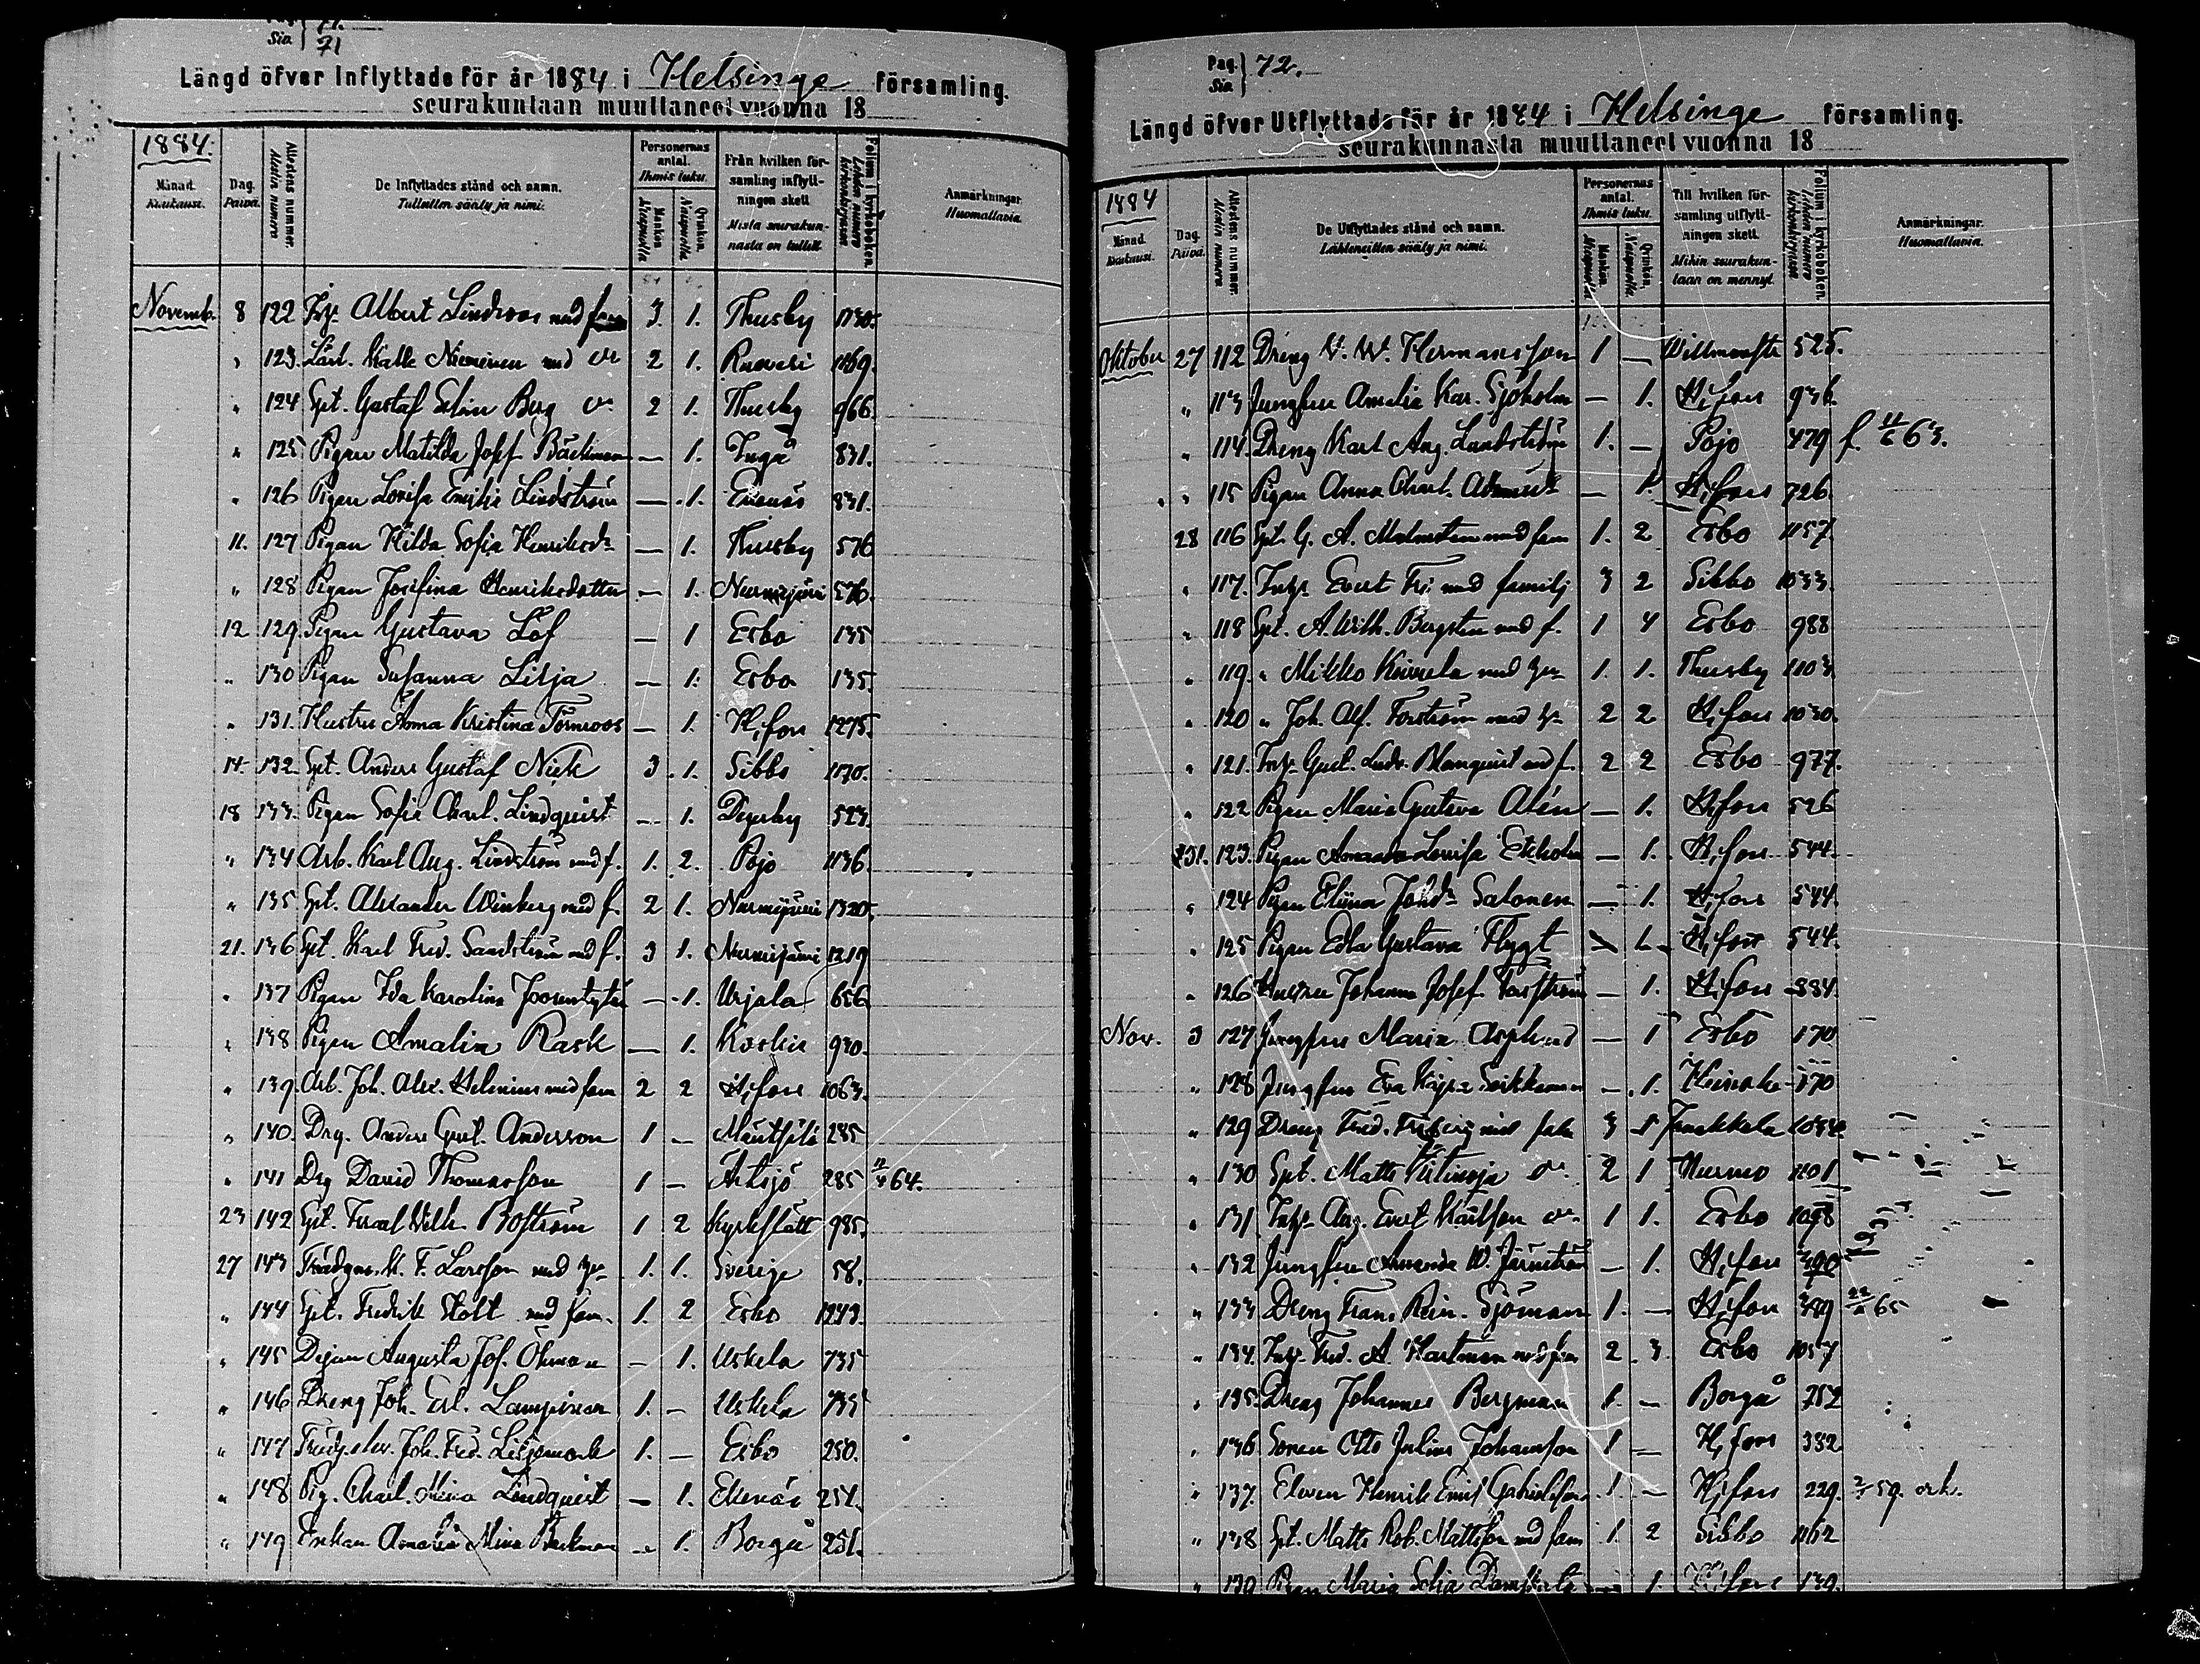 Sia 71
Längd öfver Inflyttade för år 1884 i Helsinge församling.
seurakuntaan muuttaneet vuonna 18
1884.
Månad. Kuukausi.
Dag. Päivä.
Attestens nummer Alestin numero
De Inflyttades stånd och namn. Tulleitten sääty ja nimi.
Personernas antal. Ihmis luku.
Mankön. Miespuolia
Qvinkön. Naispuolia
Från hvilken församling inflyttningen skett Mistä seurakunnasta on tullut.
Folium i kyrkoboken. Lehden numero kirkonkirjassa
Anmärkningar Huomattavia.
Novemb. 8 122 Inh. Albert Lindroos med fam 3. 1. Thusby 1730.
" 123. Kalle Nieminen med do 2 1. 1169.
" 124 Spt. Gustaf Selim Berg do 2 1. Thusby 966.
" 125 Pigan Matilda Josef. Bäckman — 1. Ingå 831.
" 126 Pigan Lovisa Emilia Lindström — 1. Ekenäs 831.
11. 127 Pigan Hilda Sofia Henriksdr — 1. Thusby 576
" 128 Pigan Josefina Henriksdotter — 1. Nurmijärvi 576.
12 129. Pigan Gustava Löf — 1 Esbo 135
" 130 Pigan Susanna Lilja — 1. Esbo 135.
" 131. Hustru Anna Kristina Törnroos — 1. H:fors 1275.
14. 132. Spt. Anders Gustaf Nick 3. 1. Sibbo 1170.
18 133. Pigan Sofia Charl. Lindquist — 1. Degerby 523.
" 134 Arb. Karl Aug. Lindström med f. 1. 2. Pojo 1136.
" 135 Spt. Alexander Winberg med f. 2 1. Nurmijärvi 1320.
21. 136 Spt. Karl Fred. Sandström med f. 3 1. Nurmijärvi 1219
" 137 Pigan Ida Karolina — 1. Urjala 656
" 138 Pigan Amalia Rask — 1. Koskis 930.
" 139. Arb. Joh. Alex. Helenius med fam 2 2 H:fors 1063.
" 140. Drg. Anders Gust. Andersson 1 — Mäntsälä 285
" 141 Drg David Thomasson 1 — Artsjö 285 64.
23 142 Spt. Wilh. Boström 1 2 Kyrkslätt 985.
27 143 Trädgm. K. F. Larsson med hu 1. 1. Sverige 58.
" 144 Spt. Fredrik Holt med fam. 1. 2 Esbo 1243.
" 145 Dejan Augusta Jos. Öhman — 1. Uskela 735
" 146 Dreng Joh. Erl. Lampinen 1. — Uskela 735
" 147 Joh. Fred. Liljemark 1. — Esbo 250.
" 148 Pig. Charl. Mina Lindquist — 1. Ekenäs 251.
" 149 Enkan Amalia Mina Backman — 1. Borgå 251.
Pag. Sia 72.
Längd öfver Utflyttade för år 1884 i Helsinge församling.
seurakunnasta muuttaneet vuonna 18
1884
Månad. Kuukausi.
Dag. Päivä.
Attestens nummer. Alestin numero
De Utflyttades stånd och namn. Lähteneitten sääty ja nimi.
Personernas antal. Ihmis luku.
Mankön. Miespuolia
Qvinkön. Naispuolia.
Till hvilken församling utflyttningen skett. Mihin seurakuntaan on mennyt.
Folium i kyrkoboken. Lehden numero kirkonkirjassa
Anmärkningar. Huomattavia.
Oktober 27 112 Dreng K. W. Hermansson 1 — Willmanstr 525.
" 113 Jungfru Amalia Kar. Sjöholm — 1. H:fors 936.
" 114. Dreng Karl Aug. Lundström 1. — Pojo 479 f. 11/6 63.
" 115 Pigan Anna Charl. — 1. H:fors 726.
28 116 Spt. G. A. Malmsten med fam 1. 2 Esbo 1157.
" 117. Inh. Evert Fri med familj 3 2 Sibbo 1033.
" 118 Spt. A. Wilh. Bergsten med f. 1 4 Esbo 988
" 119. " Mikko med hu 1. 1. Thusby 1103.
" 120 " Joh. Alf. Forström med hu 2 2 H:fors 1030.
" 121. Inh. Gust. Ludv. Blomquist med f. 2 2 Esbo 977.
" 122 Pigan Maria Gustava Alén — 1. H:fors 526
31. 123. Pigan Amanda Lovisa Ekholm — 1. H:fors 544.
" 124 Pigan Elina Johdr Salonen — 1. H:fors 544.
" 125 Pigan Edla Gustava Flygt — 1. H:fors 544.
" 126 Hustru Johanna Josef. Forsström — 1. H:fors 334.
Nov. 3 127 Jungfru Maria Asplund — 1 Esbo 170
" 128 Jungfru Eva Kajsa — 1. 170
" 129 Dreng Fred. Friberg med fam 3 1 Janakkala 1034.
" 130 Spt. Matts do 2 1 Nurmo 1101
" 131 Inh. Aug. Evert Karlson do 1 1. Esbo 1098
" 132 Jungfru Amanda W. Järnström — 1. H:fors 390
" 133 Dreng Frans Rein. Sjöman 1. — H:fors 389 65
" 134. Inh. Fred. A. Hartman med fam 2 3 Esbo 1057
" 135. Dreng Johannes Bergman 1. — Borgå 752
" 136 Sonen Otto Julius Johansson 1 — H:fors 332
" 137. Eleven Henrik Emil Gabrielsson 1. — H:fors 229. 59. ork.
" 138 Spt. Matts Rob. Mattsson med fam 1. 2 Sibbo 1162
" 139 Pigan Maria Sofia — 1. H:fors 139.